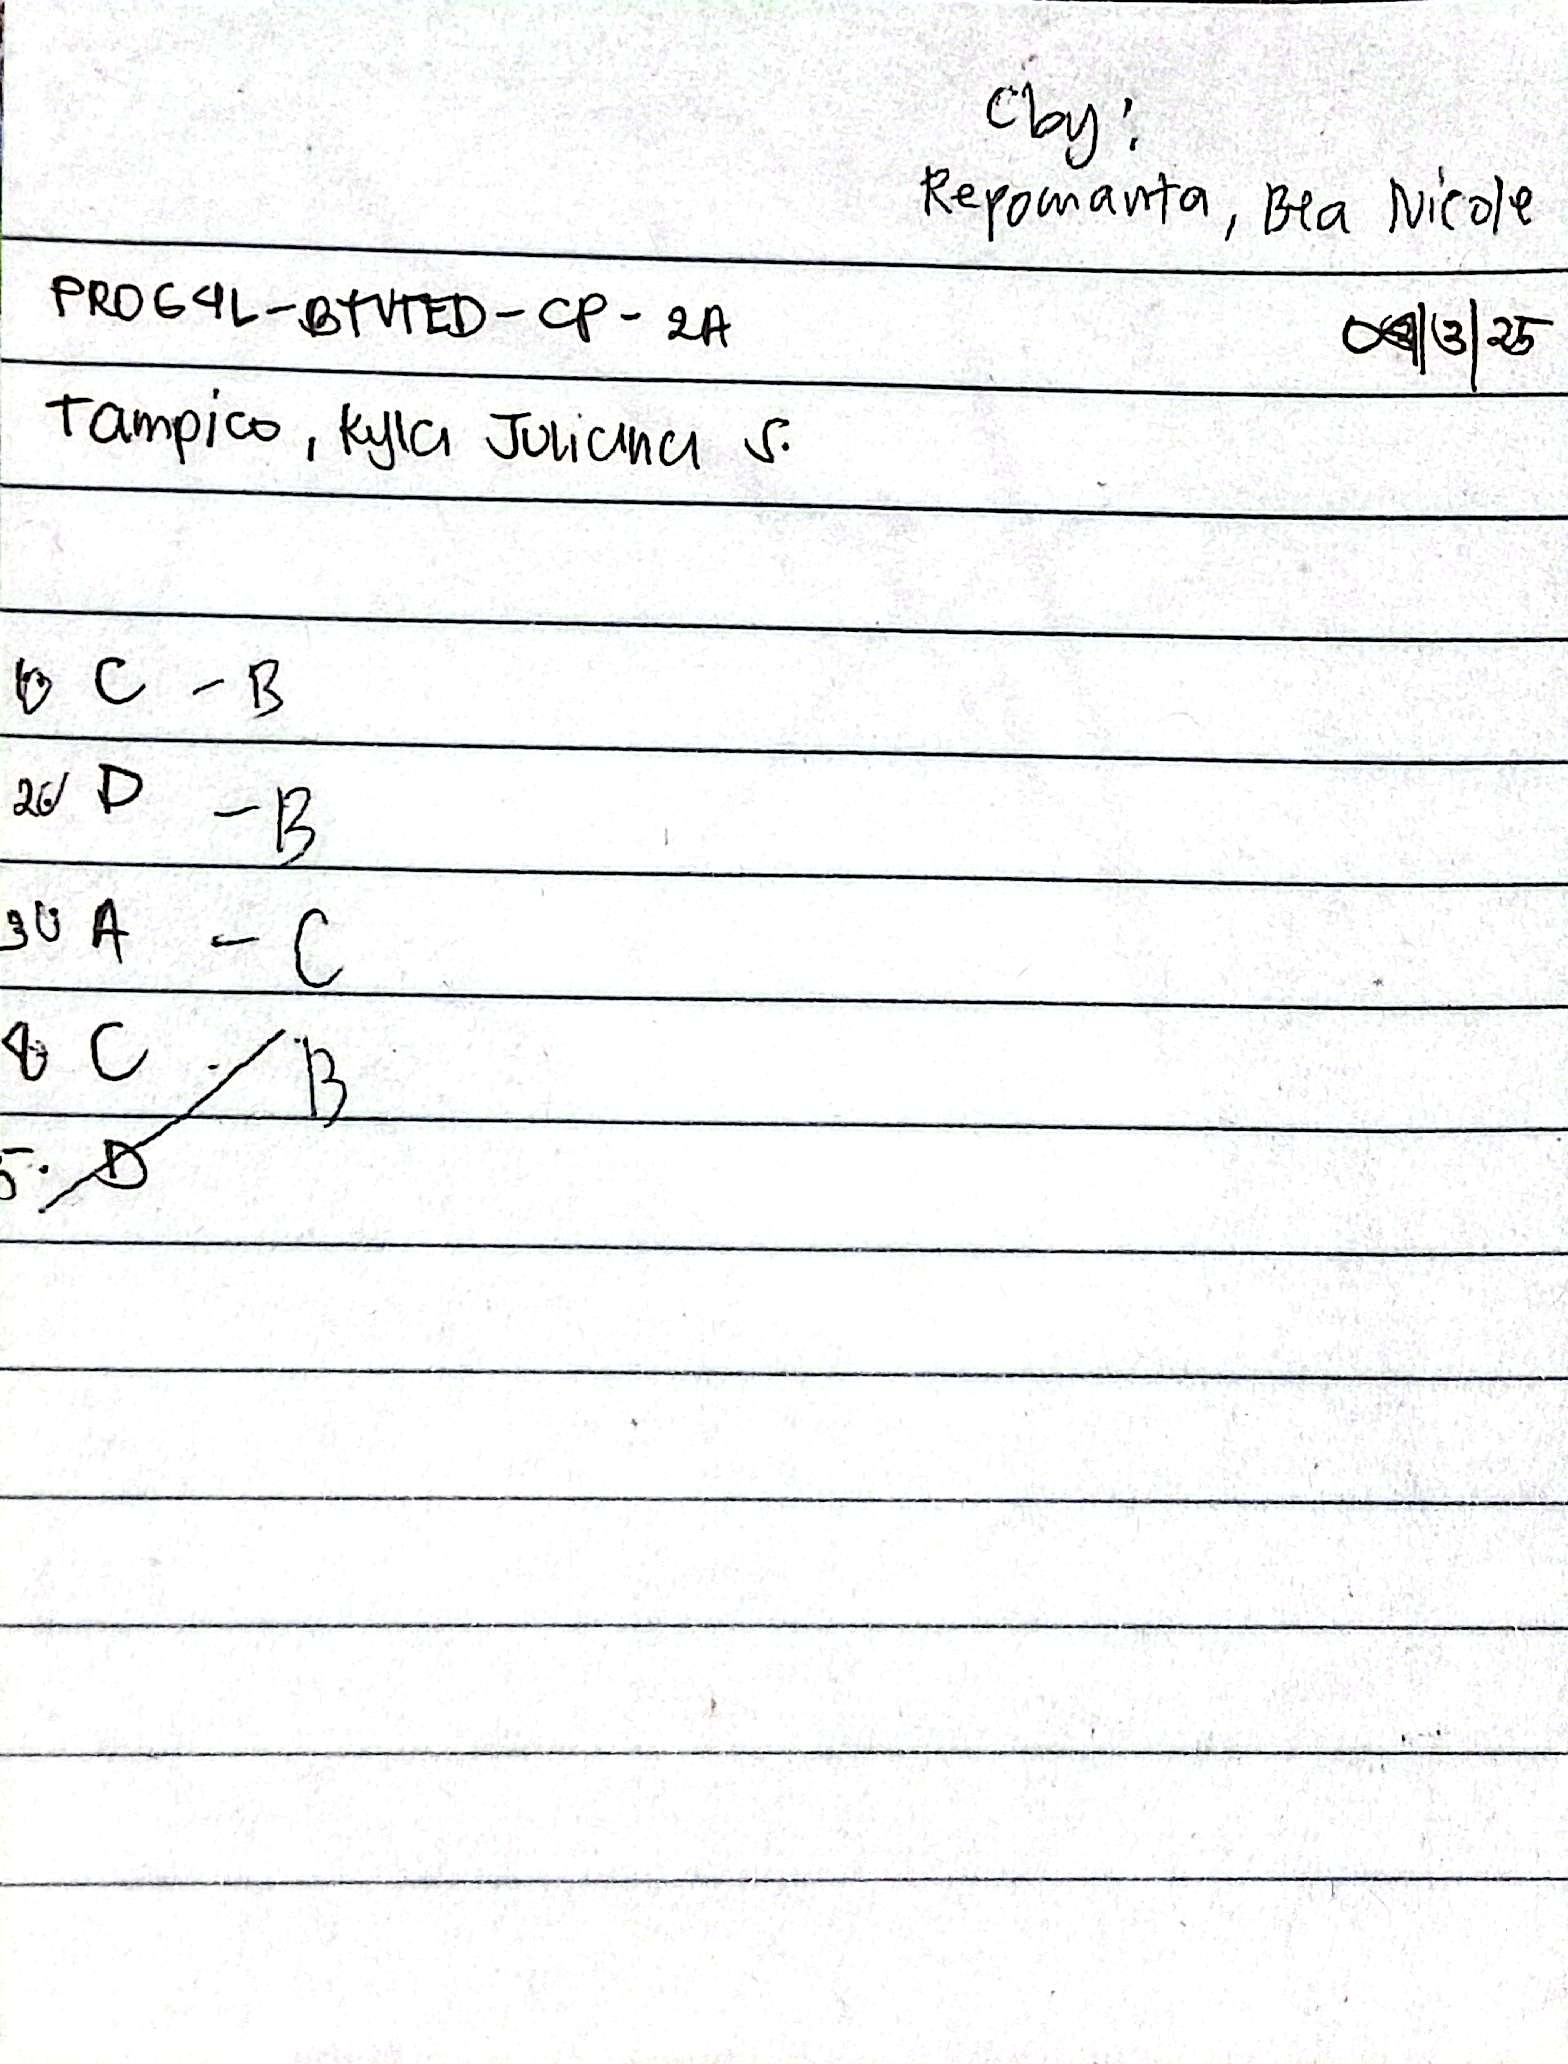 Cby:
Repomanta, Bea Nicole
PROG4L-BTVTED-CP-2A
/3/25
Tampico, Kyla Juliana S.
C - B
2. D - B
3. A - C
C - B
5. D